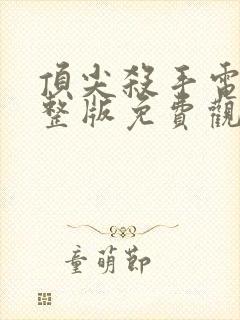 頂尖殺手電
整版免費觀
童萌節